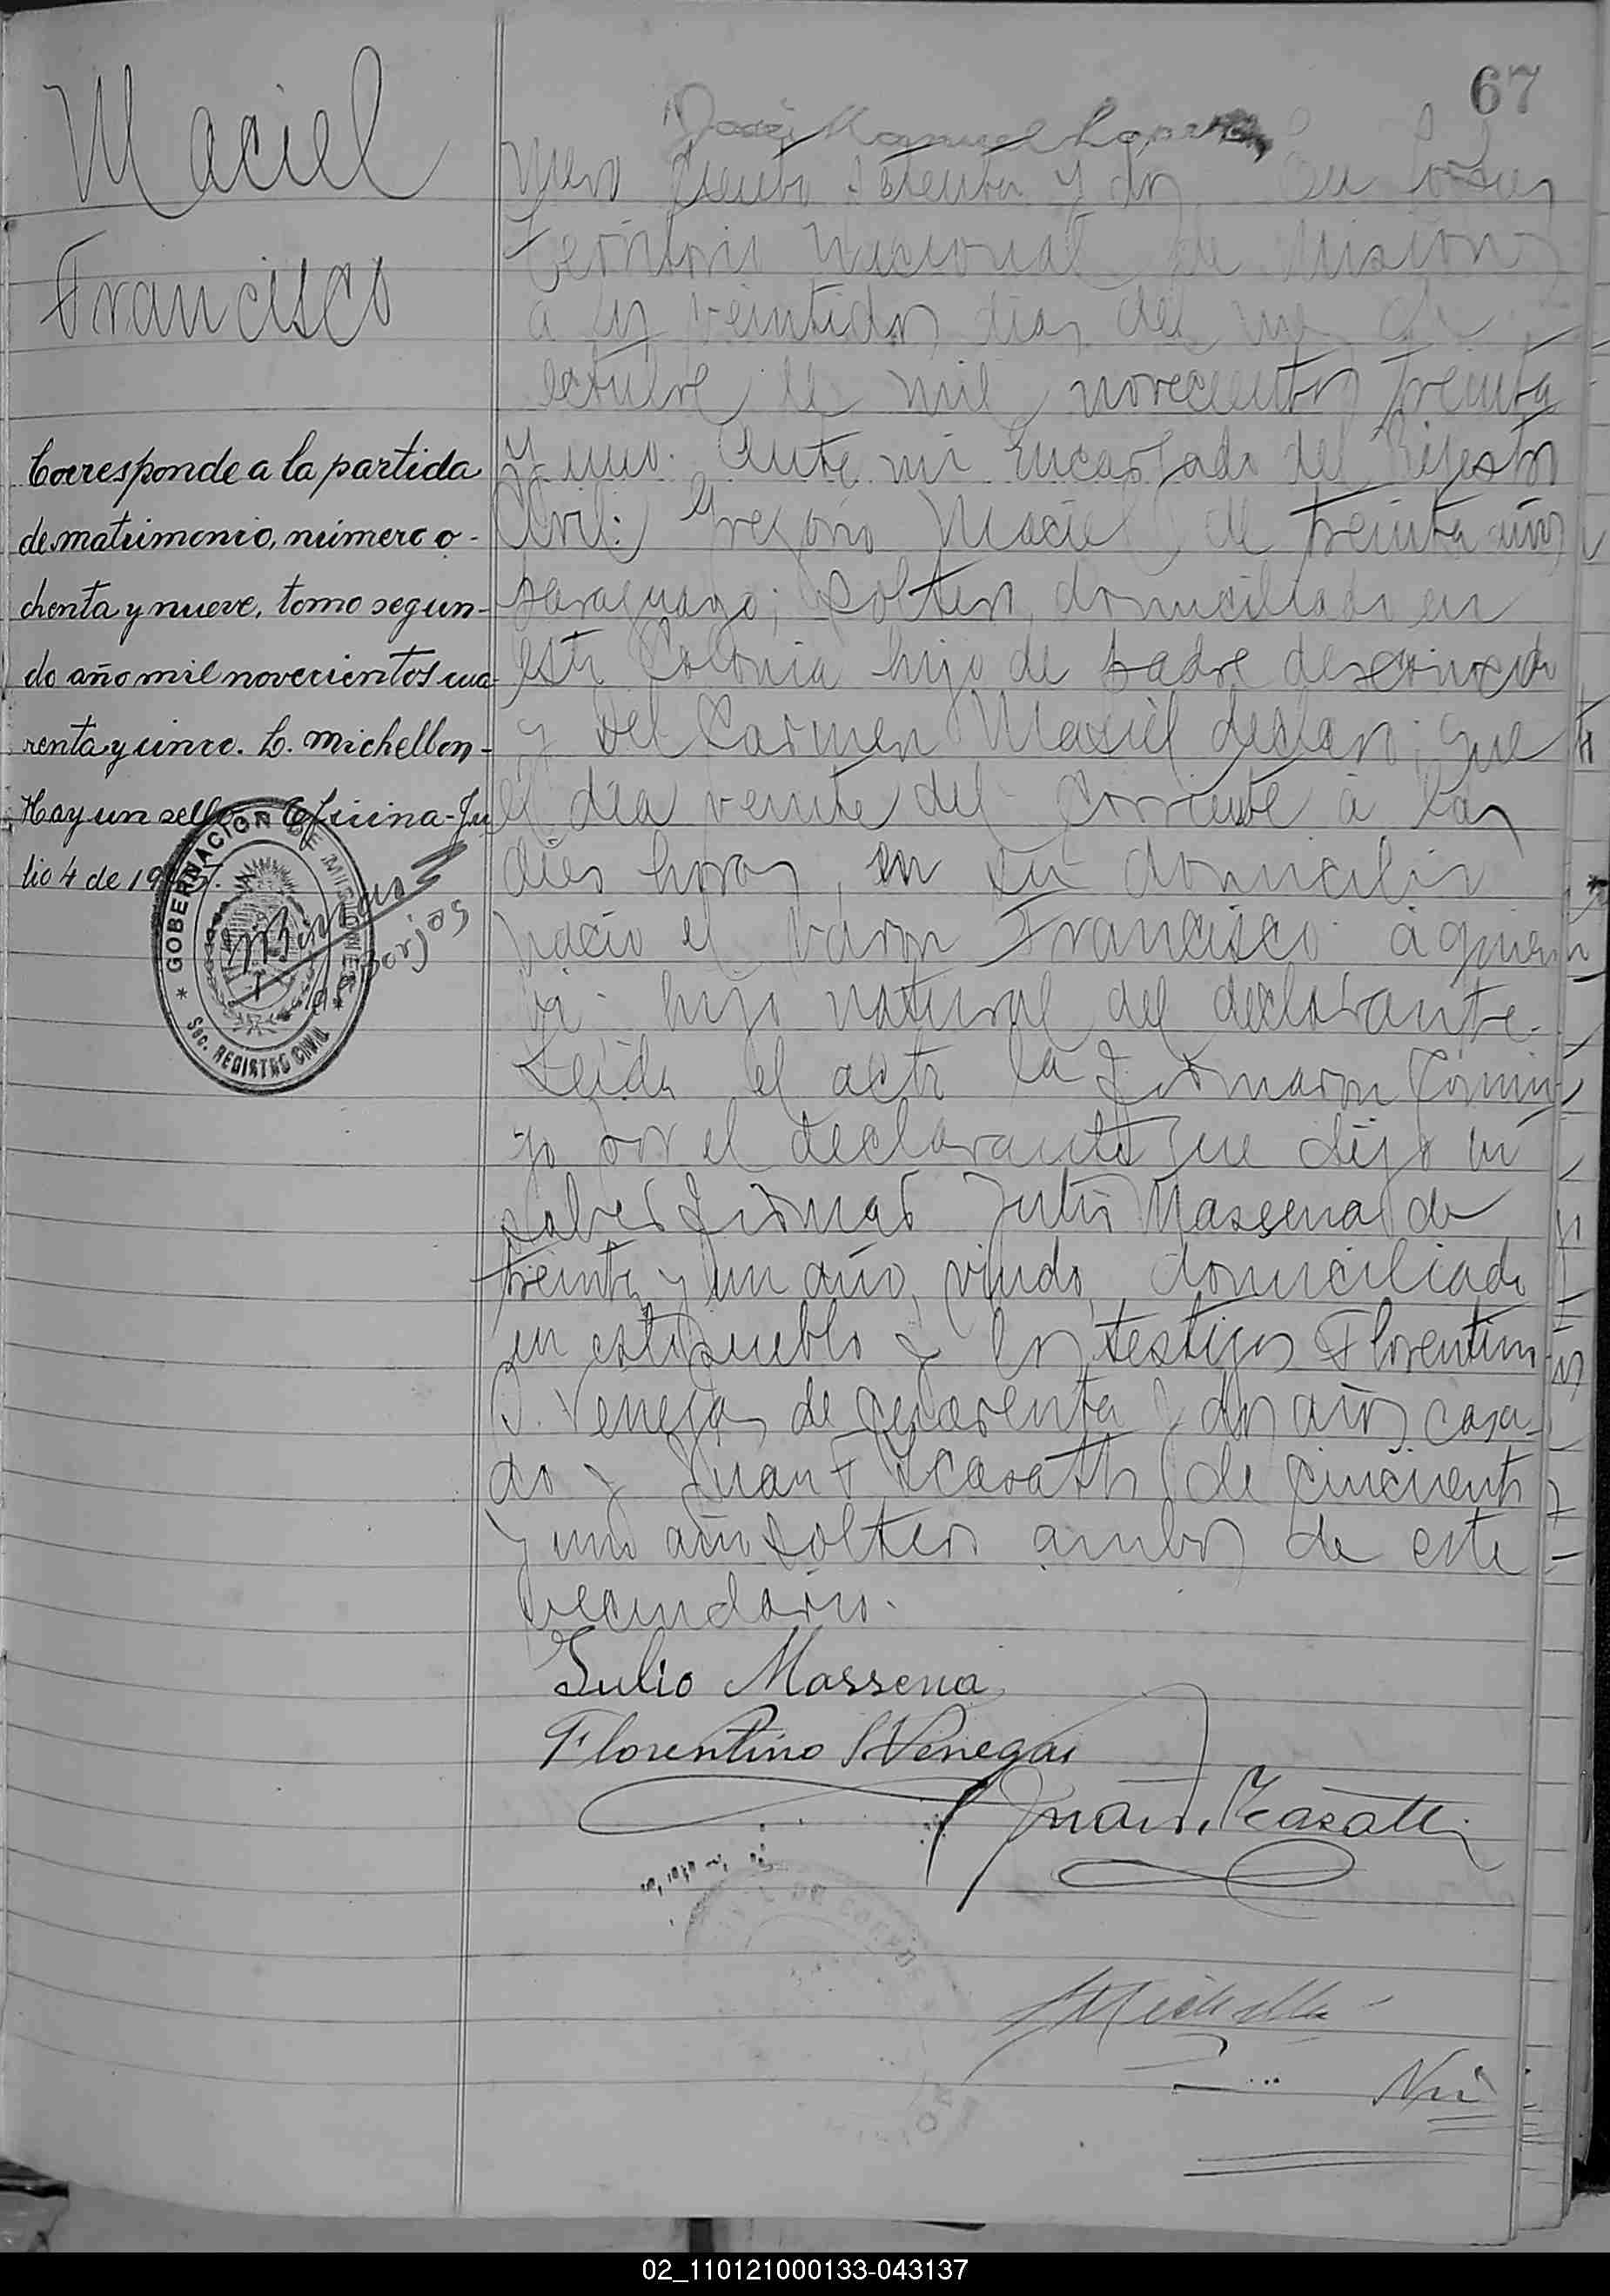 67
Maciel
Francisco
Corresponde a la partida
de matrimonio, número o-
chenta y nueve, tomo segun-
do año mil novecientos cua-
renta y cinco. L. Michellon-
Hay un sello Oficina-Ju
lio 4 de 19
GOBERNACION DE MISIONES
Sec. REGISTRO CIVIL
Borjas
José Manuel Lopez
mero ciento setenta y dos En
territorio Nacional de Misiones
a los veintidos dias del mes de
octubre de mil novecientos treinta
y uno. Ante mi Encargado del Rejistro
Civil: Gregorio Maciel de treinta años
paraguayo; soltero, domiciliado en
esta Colonia hijo de padre desconocido
y del Carmen Masiel declaro; que
el dia veinte del corriente á las
dies horas, en su domicilio
nacio el varon Francisco a quien
hijo natural del declarante.
Leida el acta la firmaron conmi-
go por el declarante que dijo ni
saber firmar Julio Massena de
treinta y un año, viudo, domiciliado
en este pueblo y los testigos Florentino
S. Venegas de cuarenta y dos años casa-
do y Juan F. de cincuenta
y uno año soltero ambos de este
vecindario.
Julio Massena
Florentino S. Venegas
Juan
02_110121000133-043137